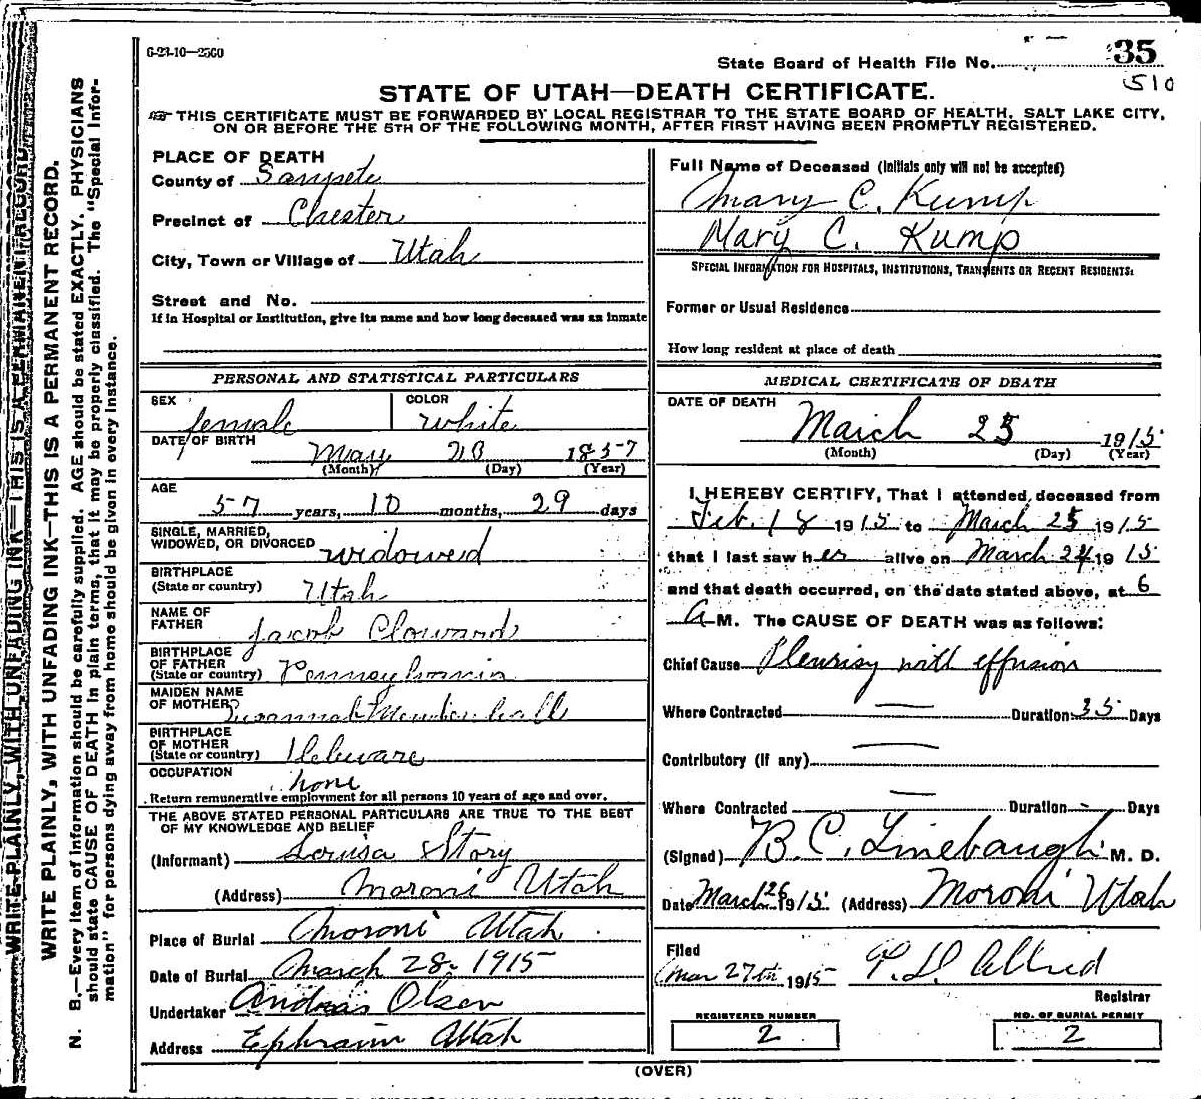 6-23-10—2500
State Board of Health File No. 35
510
STATE OF UTAH—DEATH CERTIFICATE.
THIS CERTIFICATE MUST BE FORWARDED BY LOCAL REGISTRAR TO THE STATE BOARD OF HEALTH, SALT LAKE CITY,
ON OR BEFORE THE 5TH OF THE FOLLOWING MONTH, AFTER FIRST HAVING BEEN PROMPTLY REGISTERED.
WRITE PLAINLY, WITH UNFADING INK—THIS IS A PERMANENT RECORD
WRITE PLAINLY, WITH UNFADING INK—THIS IS A PERMANENT RECORD.
N. B.—Every item of information should be carefully supplied. AGE should be stated EXACTLY. PHYSICIANS
should state CAUSE OF DEATH in plain terms, that it may be properly classified. The "Special Infor-
mation" for persons dying away from home should be given in every instance.
PLACE OF DEATH
County of Sanpete
Precinct of Chester
City, Town or Village of Utah
Street and No.
If in Hospital or Institution, give its name and how long deceased was an inmate
PERSONAL AND STATISTICAL PARTICULARS
SEX female COLOR white
DATE OF BIRTH May 20 1857
(Month) (Day) (Year)
AGE
57 years, 10 months, 29 days
SINGLE, MARRIED,
WIDOWED, OR DIVORCED widowed
BIRTHPLACE
(State or country) Utah
NAME OF
FATHER Jacob Cloward
BIRTHPLACE
OF FATHER
(State or country) Pennsylvania
MAIDEN NAME
OF MOTHER Susannah
BIRTHPLACE
OF MOTHER
(State or country) Deleware
OCCUPATION none
Return remunerative employment for all persons 10 years of age and over.
THE ABOVE STATED PERSONAL PARTICULARS ARE TRUE TO THE BEST
OF MY KNOWLEDGE AND BELIEF
(Informant) Louisa Story
(Address) Moroni Utah
Place of Burial Moroni Utah
Date of Burial March 28, 1915
Undertaker Andreas Olsen
Address Ephraim Utah
Full Name of Deceased (Initials only will not be accepted)
Mary C. Kump
Mary C. Kump
SPECIAL INFORMATION FOR HOSPITALS, INSTITUTIONS, TRANSIENTS OR RECENT RESIDENTS:
Former or Usual Residence
How long resident at place of death
MEDICAL CERTIFICATE OF DEATH
DATE OF DEATH
March 25 1915
(Month) (Day) (Year)
I HEREBY CERTIFY, That I attended deceased from
Feb. 18 1915 to March 25 1915
that I last saw her alive on March 24 1915
and that death occurred, on the date stated above, at 6
A M. The CAUSE OF DEATH was as follows:
Chief Cause Pleurisy with effusion
Where Contracted — Duration 35 Days
Contributory (if any) —
Where Contracted — Duration - Days
(Signed) B. C. Linebaugh M. D.
Date March 26 1915. (Address) Moroni Utah
Filed
Mar 27th 1915 P. D. Allred
Registrar
REGISTERED NUMBER
2
NO. OF BURIAL PERMIT
2
(OVER)